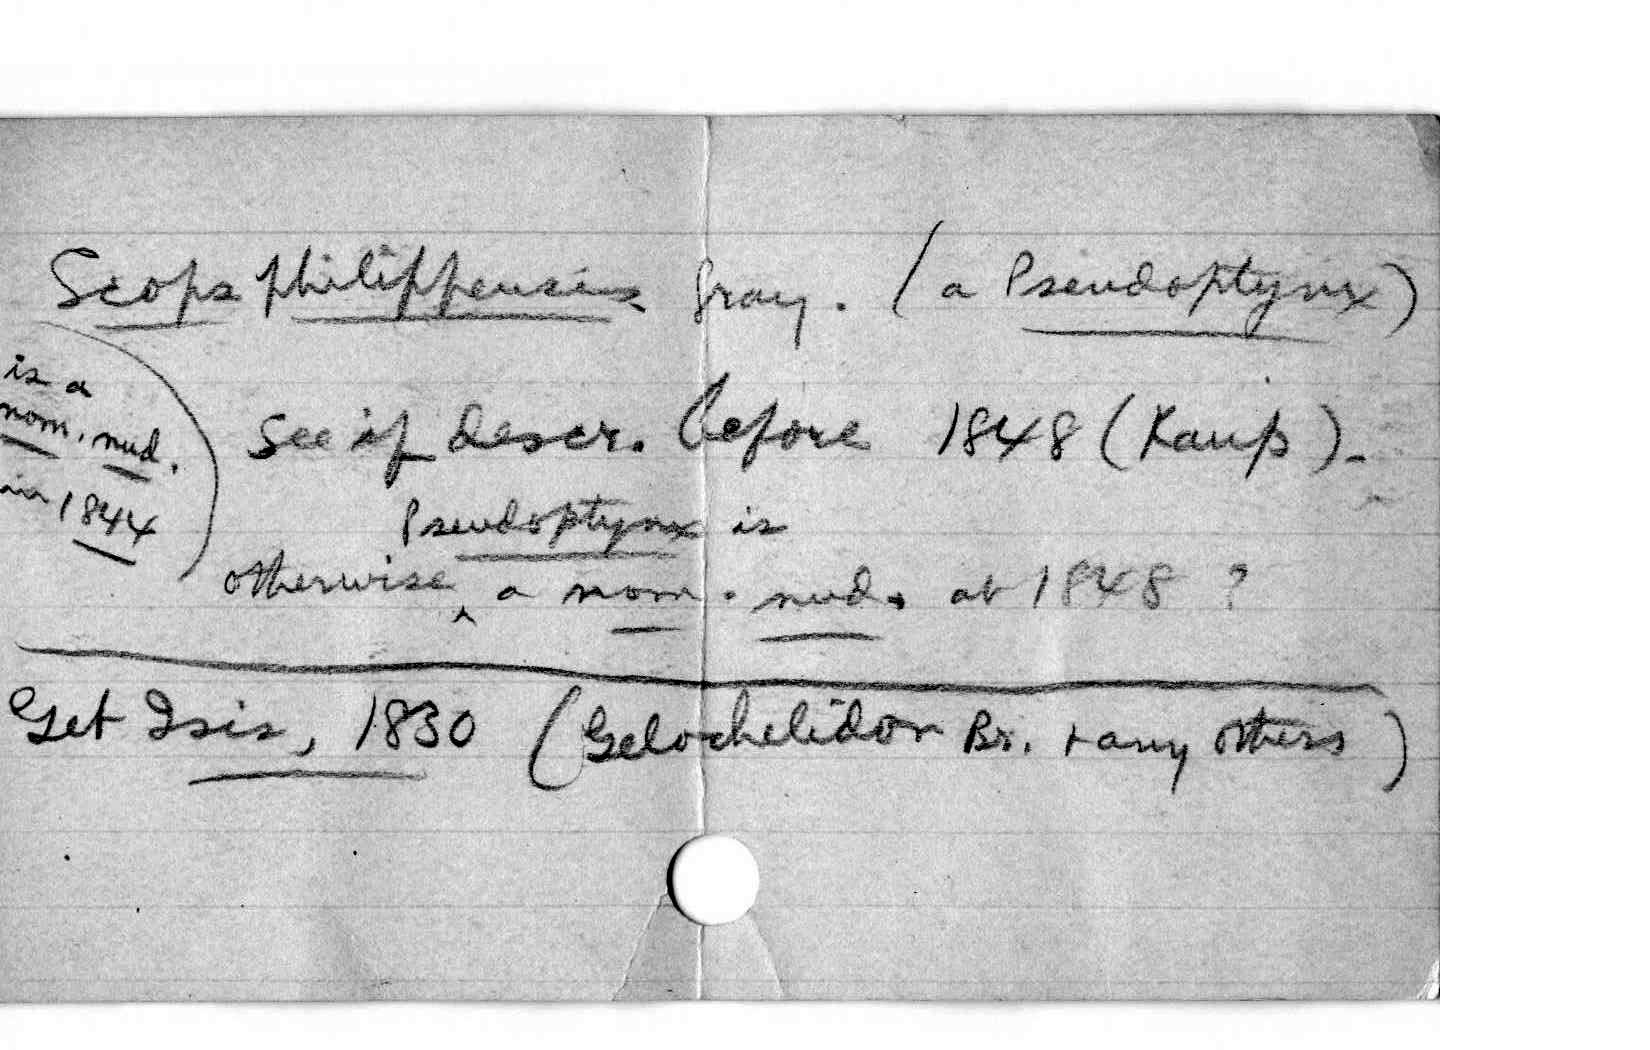 Scops philippensis Gray. (a Pseudoptynx)
is a
nom. nud.
in 1844
See if descr. before 1848 (Kaup).
Pseudoptynx is
otherwise ^ a nom. nud. at 1848 ?
Get Isis, 1830 (Gelochelidon Br. + any others)